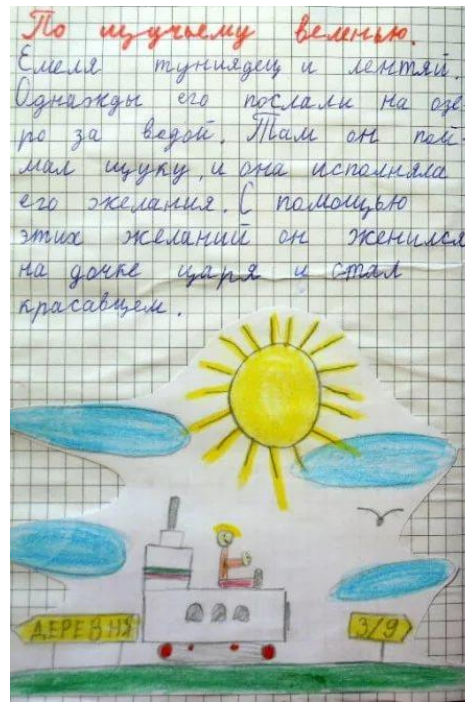 По щучьему веленью.
Емеля туниядец и лентяй.
Однажды его послали на озе-
ро за водой. Там он пой-
мал щуку, и она исполняла
его желания. С помощью
этих желаний он женился
на дочке царя и стал
красавцем.
ДЕРЕВНЯ
3/9